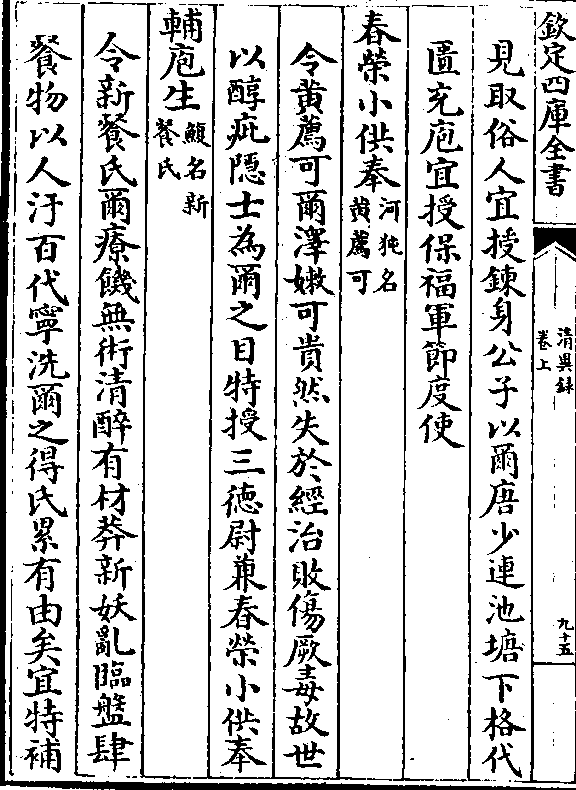 欽定四庫全書
清異錄
卷上
九十五
見取俗人宜授鍊身公子以爾唐少連池塘下格代
匱充庖宜授保福軍節度使
春榮小供奉河㹠名
黄薦可
令黄薦可爾澤嫩可貴然失於經治敗傷厥毒故世
以醇疵隱士為爾之目特授三德尉兼春榮小供奉
輔庖生鰕名新
餐氏
令新餐氏爾療饑無術清醉有材莽新妖亂臨盤肆
餐物以人汙百代寧洗爾之得氏累有由矣宜特補